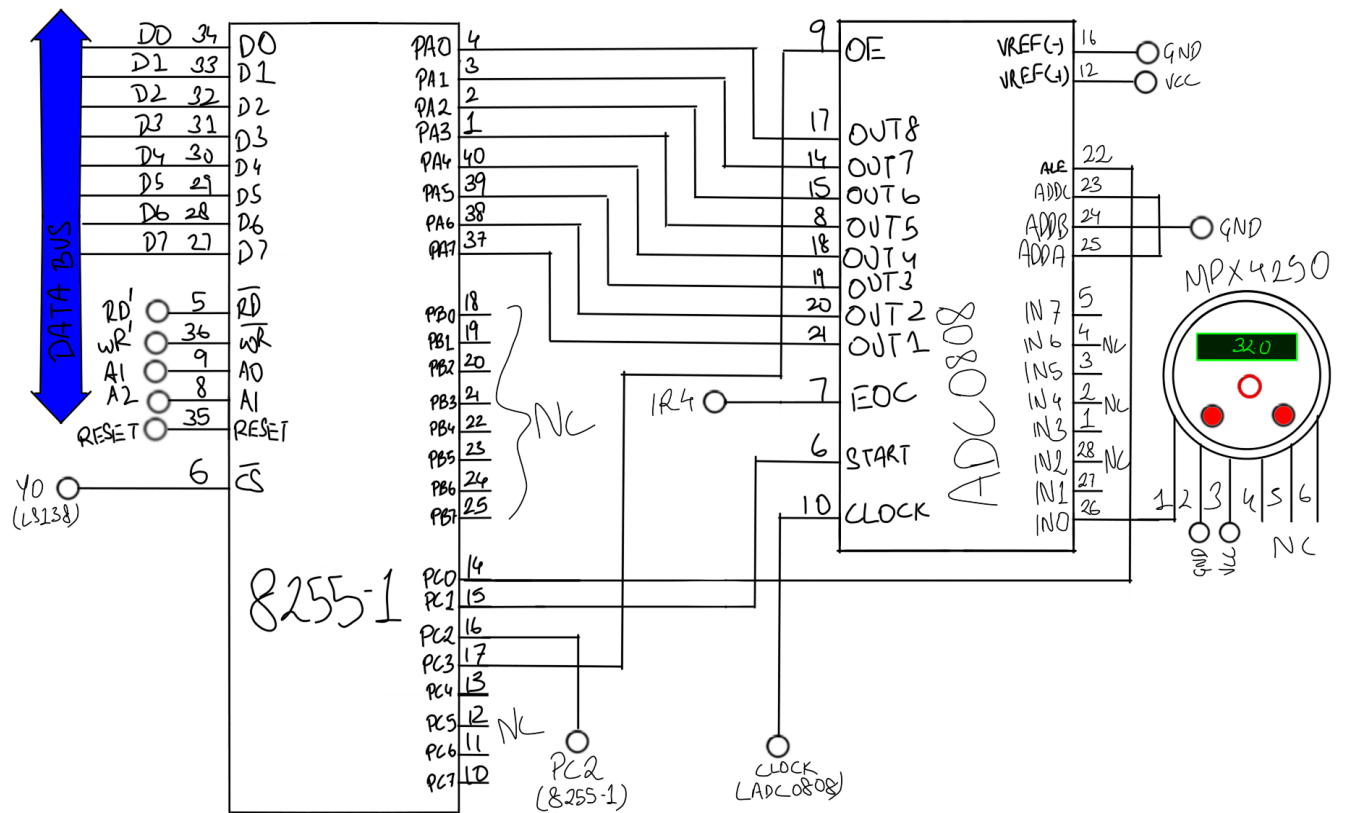 DATA BUS
D0 34 D0
D1 33 D1
D2 32 D2
D3 31 D3
D4 30 D4
D5 29 D5
D6 28 D6
D7 27 D7
RD' 5 RD
WR' 36 WR
A1 9 A0
A2 8 A1
RESET 35 RESET
Y0 6 CS
(LS138)
8255-1
PA0 4
PA1 3
PA2 2
PA3 1
PA4 40
PA5 39
PA6 38
PA7 37
PB0 18
PB1 19
PB2 20
PB3 21
PB4 22
PB5 23
PB6 24
PB7 25
NC
PC0 14
PC1 15
PC2 16
PC3 17
PC4 13
PC5 12
PC6 11
PC7 10
NC
PC2
(8255-1)
CLOCK
(ADC0808)
9 OE
17 OUT8
14 OUT7
15 OUT6
8 OUT5
18 OUT4
19 OUT3
20 OUT2
21 OUT1
IR4 7 EOC
6 START
10 CLOCK
ADC0808
VREF(-) 16 GND
VREF(+) 12 VCC
ALE 22
ADDC 23
ADDB 24 GND
ADDA 25
IN7 5
IN6 4 NC
IN5 3
IN4 2 NC
IN3 1
IN2 28 NC
IN1 27
IN0 26
MPX4250
320
1 2 3 4 5 6
GND VCC NC